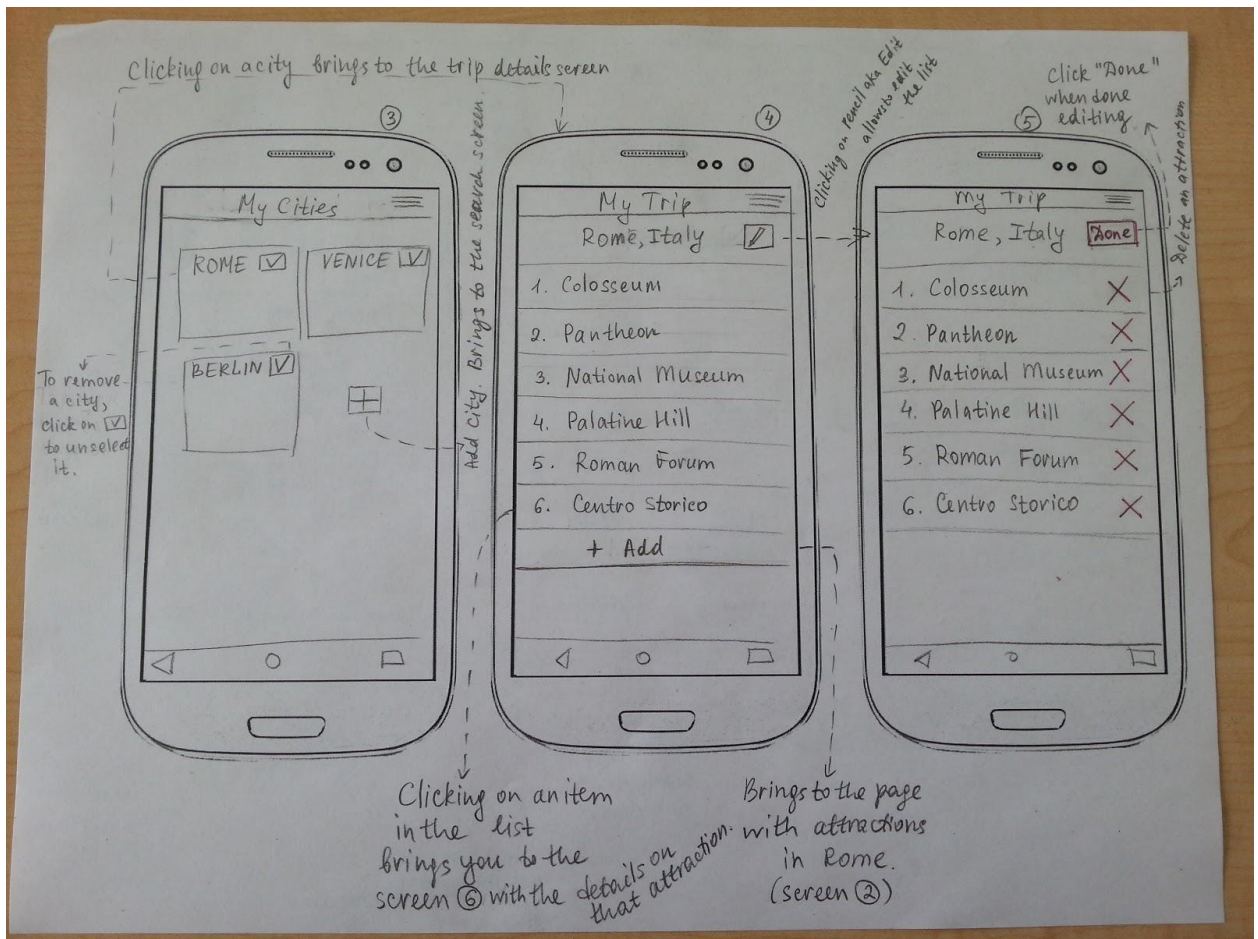 Clicking on a city brings to the trip details screen
③
My Cities
ROME
VENICE
BERLIN
To remove
a city,
click on ☑
to unselect
it.
Add City. Brings to the search screen.
④
My Trip
Rome, Italy
1. Colosseum
2. Pantheon
3. National Museum
4. Palatine Hill
5. Roman Forum
6. Centro Storico
+ Add
Clicking on pencil aka Edit
allows to edit
the list
⑤
Click "Done"
when done
editing
My Trip
Rome, Italy
Done
1. Colosseum X
2. Pantheon X
3. National Museum X
4. Palatine Hill X
5. Roman Forum X
6. Centro Storico X
Delete an attraction
Clicking on an item
in the list
brings you to the
screen ⑥ with the details on
that attraction.
Brings to the page
with attractions
in Rome.
(screen ②)